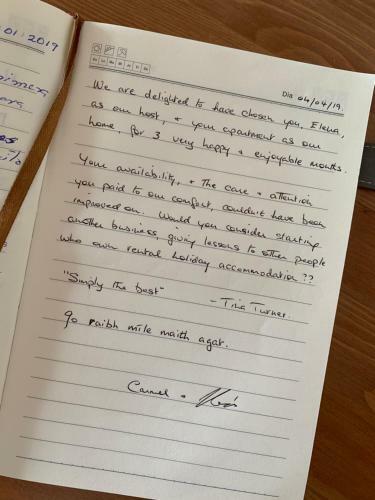 01 2019
Do Lu Ma Mi Ju Vi Sa
Dia 04/04/19.
We are delighted to have chosen you, Elena,
as our host, + your apartment as our
home, for 3 very happy + enjoyable months.
Your availability, + the care + attention
you paid to our comfort, couldn't have been
improved on. Would you consider starting
another business, giving lessons to other people
who own rental holiday accomodation ??
"Simply the best"
- Tina Turner.
go raibh míle maith agat.
Carmel +